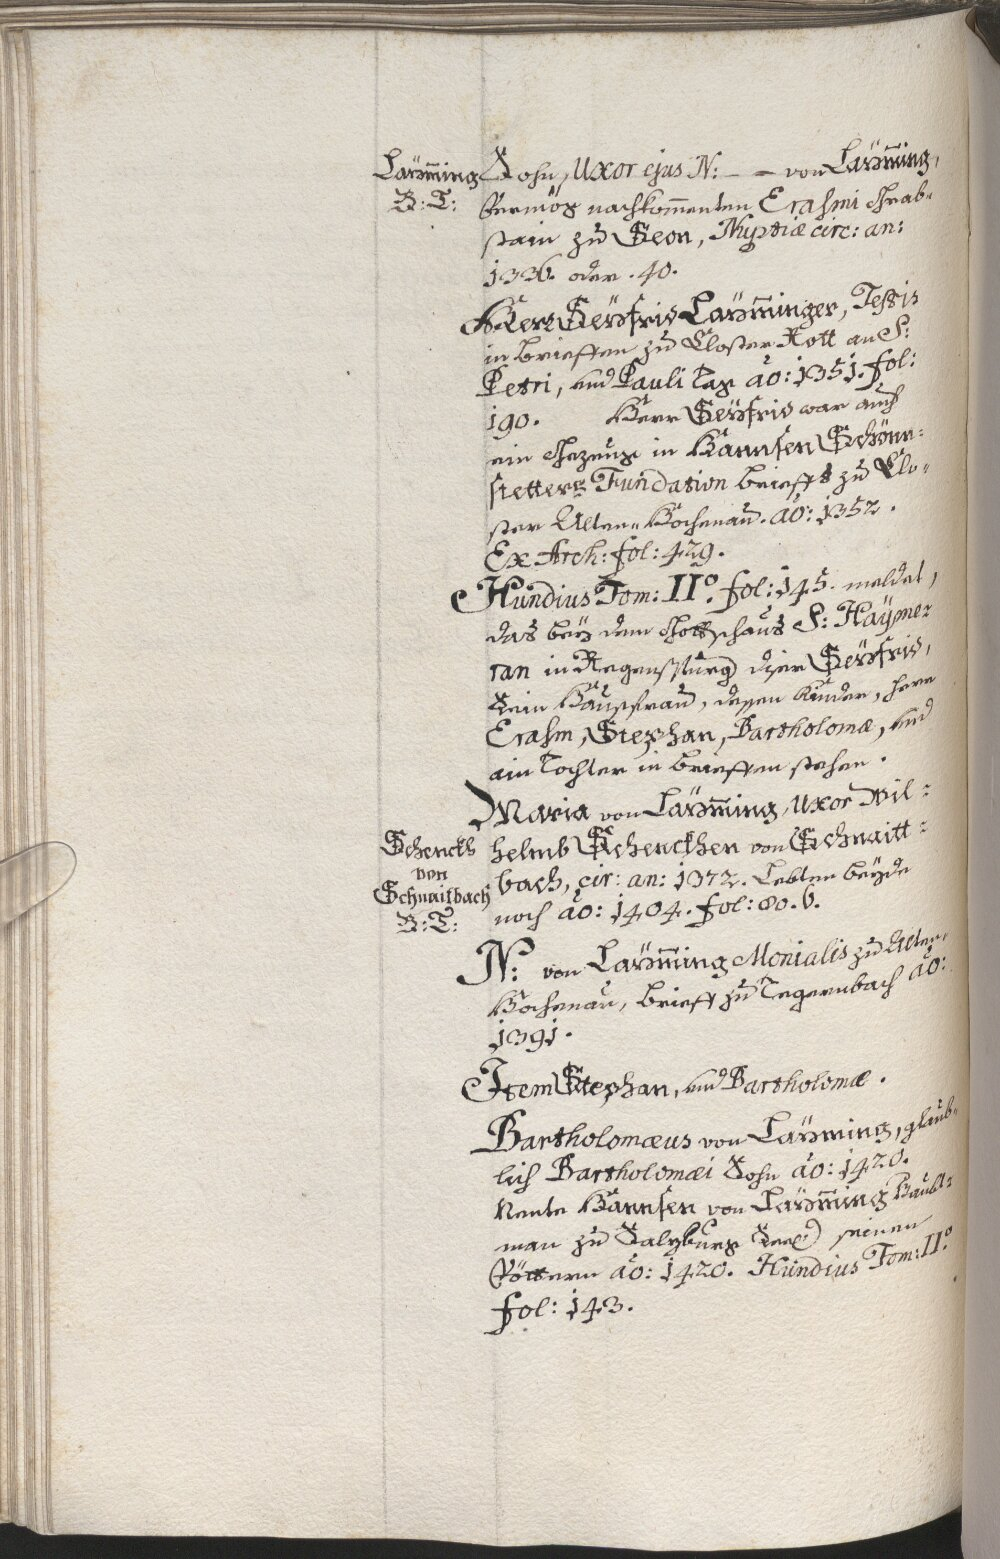 Laÿming
B: T:
Sohn, Uxor ejus N: – – von Laÿming,
Vermög nachkom̄enten Erasmi Grab-
stain zu Seon, Nuptiæ circ: an:
1336. oder .40.
Herr Seÿfrid Laÿminger, Testis
in brieffen zu Closter Rott an S:
Petri, und Pauli tag ao: 1351. fol:
190. Herr Seÿfrid war auch
ein Gezeuge in Hannsen Schönn-
stetters Fundation brieffs zu Clo-
ster Alten-Hochenau. ao: 1352.
Ex Arch: fol: 429.
Hundius Tom: II.o fol: 145. meldet,
das beÿ dem Gottshaus S: Haÿme-
ran in Regenspurg diser Seÿfrid,
Sein Hausfrau, dessen Kinder, herr
Erasm, Stephan, Bartholomæ, und
ain tochter in brieffen stehen.
Maria von Laÿming, Uxor Wil-
Schenckh
von
Schnaitbach
B: T:
helmb Schenckhen von Schnaitt-
bach, cir: an: 1372. Lebten beÿde
noch ao: 1404. fol: 80. b.
N: von Laÿming Monialis zu Alten-
Hochenau, brieff zu Tegernbach ao:
1391.
Item Stephan, und Bartholomæ.
Bartholomæus von Laÿming, glaub-
lich Bartholomæi Sohn ao: 1420.
Nente Hannsen von Laÿming Haubt-
man zu Salzburg seinen
Vöttern ao: 1420. Hundius Tom: II.o
fol: 143.